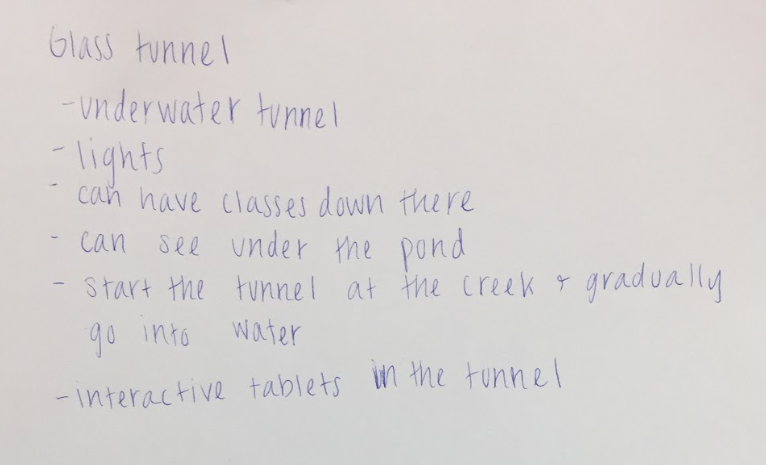 Glass tunnel
- underwater tunnel
- lights
- can have classes down there
- can see under the pond
- start the tunnel at the creek & gradually
go into water
- interactive tablets in the tunnel